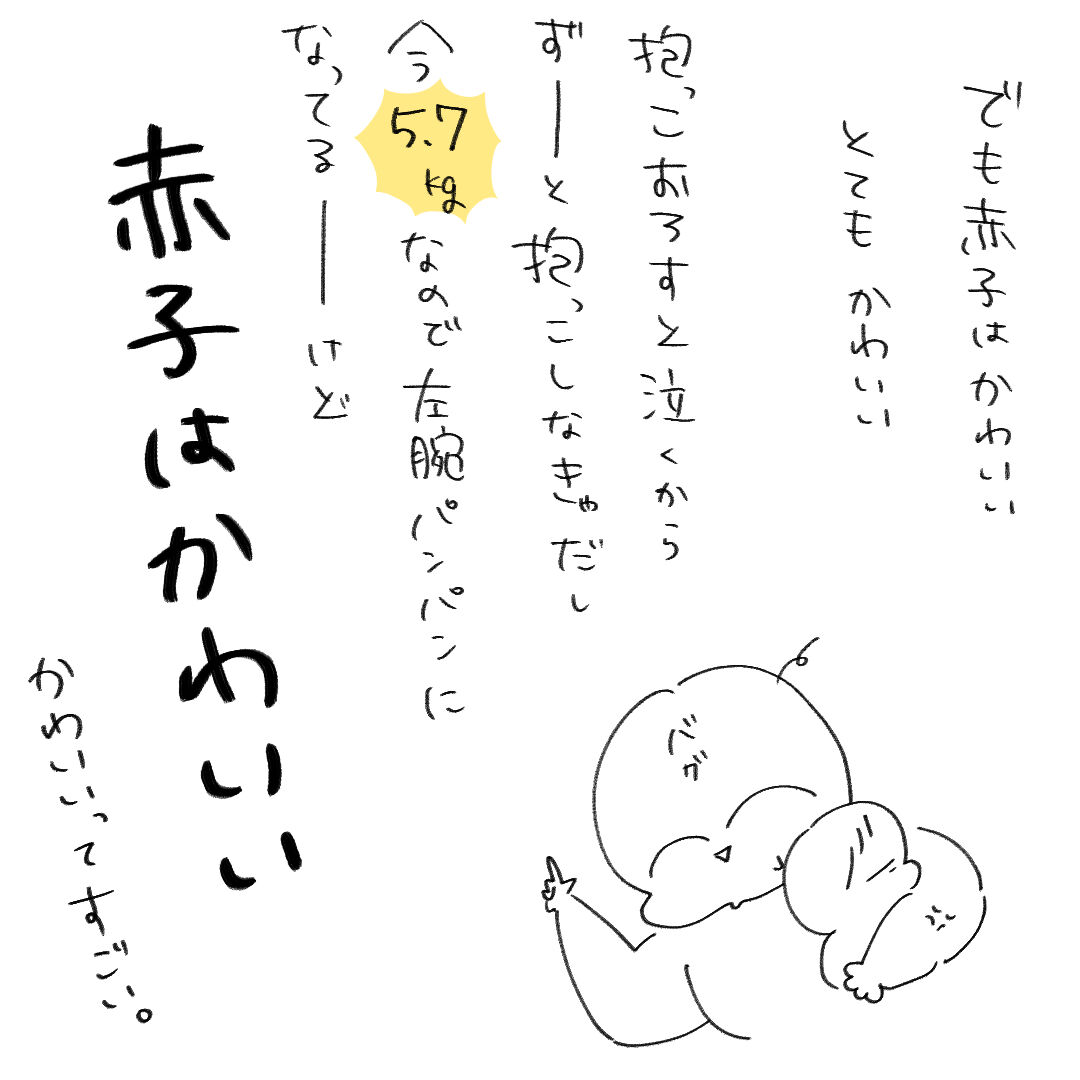 でも赤子はかわいい
とても かわいい
抱っこおろすと泣くから
ずーーと抱っこしなきゃだし
今5.7kgなので左腕パンパンに
なってるーーけど
赤子はかわいい
かわいいってすごい。
バグ